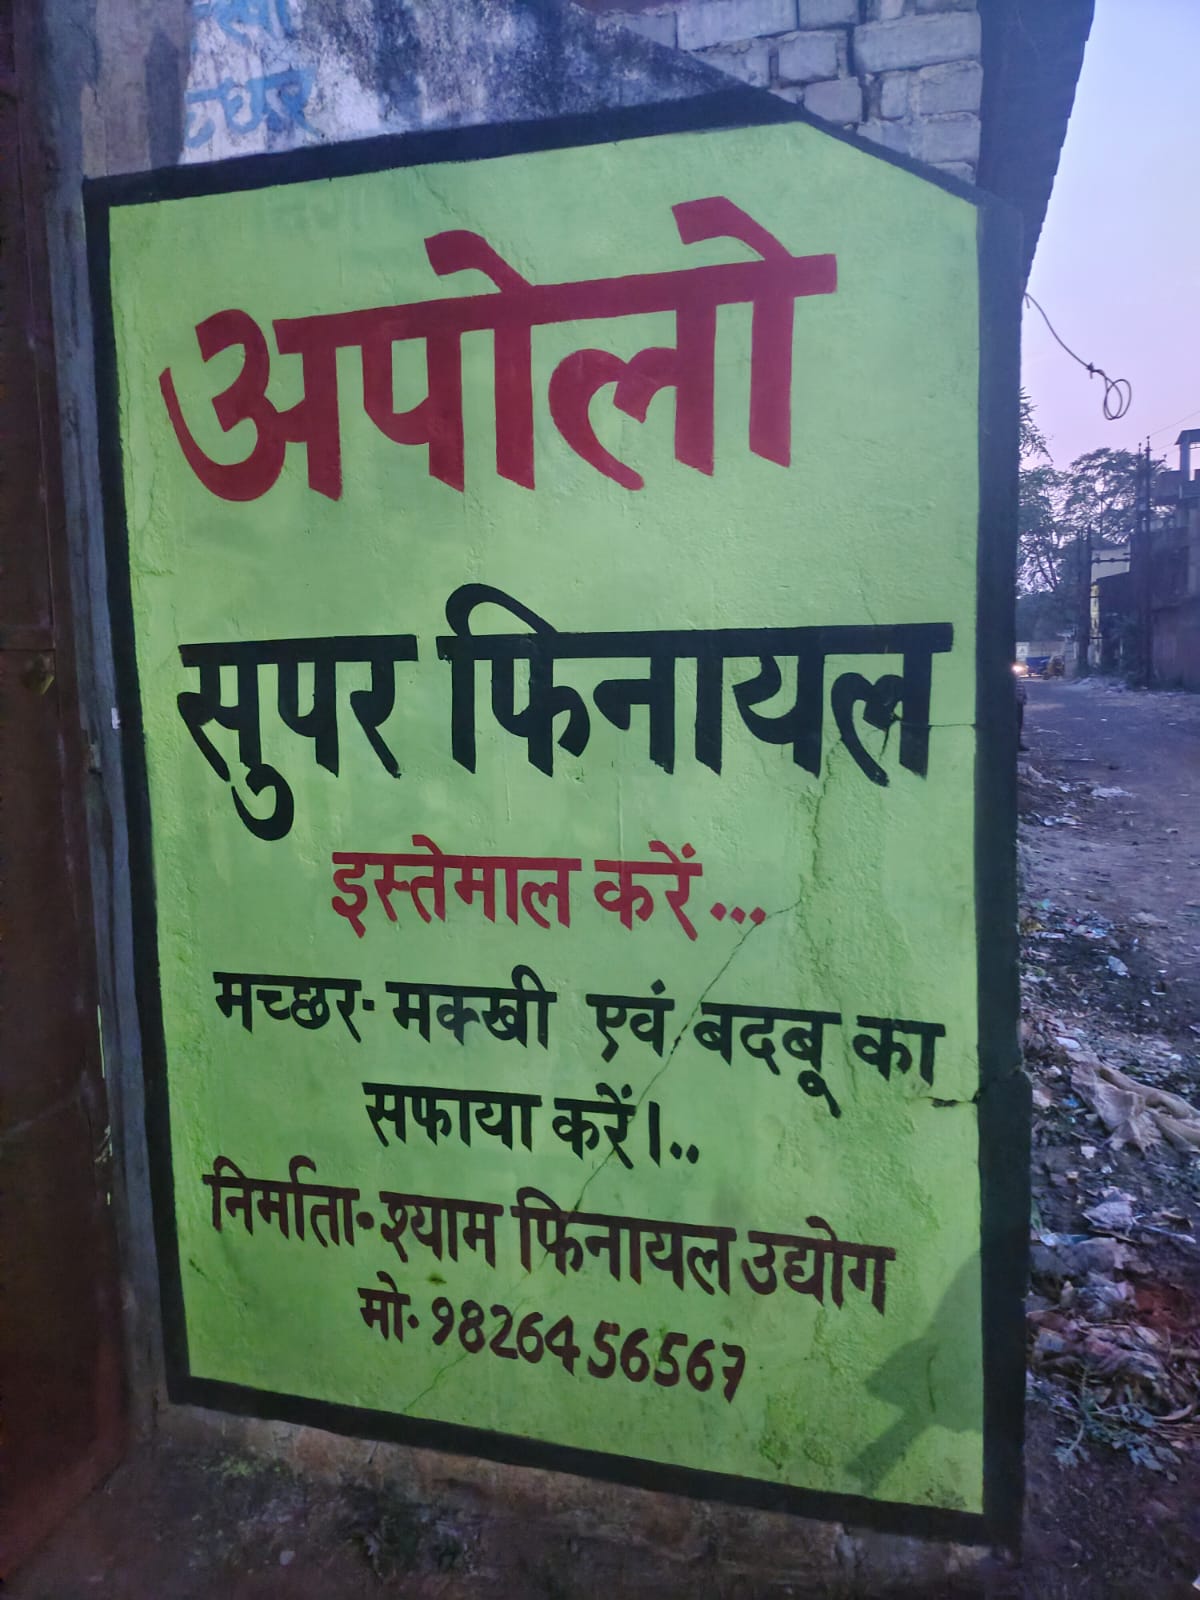 अपोलो
सुपर फिनायल
इस्तेमाल करें...
मच्छर-मक्खी एवं बदबू का
सफाया करें।..
निर्माता-श्याम फिनायल उद्योग
मो. 9826456567